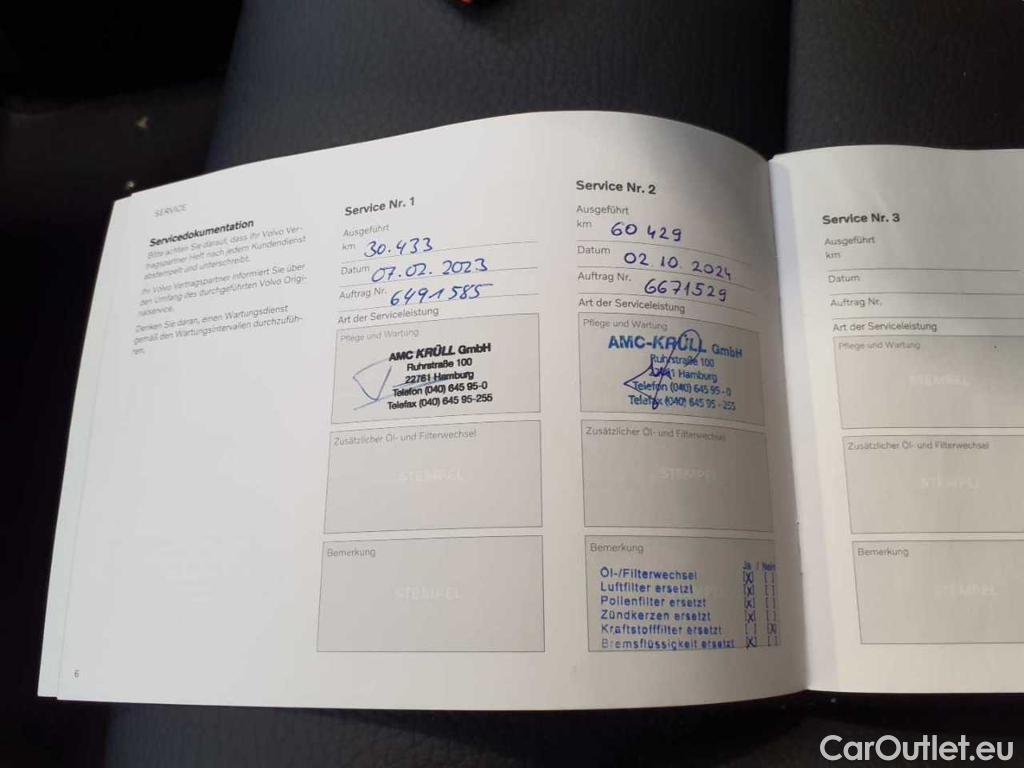 SERVICE
Servicedokumentation
Bitte achten Sie darauf, dass Ihr Volvo Ver-
tragspartner Heft nach jedem Kundendienst
abstempelt und unterschreibt.
Ihr Volvo Vertragspartner informiert Sie über
den Umfang des durchgeführten Volvo Origi-
nalservice.
Denken Sie daran, einen Wartungsdienst
gemäß den Wartungsintervallen durchzufüh-
ren.
6
Service Nr. 1
Ausgeführt
km 30.433
Datum 07.02.2023
Auftrag Nr. 6491585
Art der Serviceleistung
Pflege und Wartung
AMC KRÜLL GmbH
Ruhrstraße 100
22761 Hamburg
Telefon (040) 645 95-0
Telefax (040) 645 95-255
Zusätzlicher Öl- und Filterwechsel
STEMPEL
Bemerkung
STEMPEL
Service Nr. 2
Ausgeführt
km 60 429
Datum 02.10.2024
Auftrag Nr. 6671529
Art der Serviceleistung
Pflege und Wartung
AMC-KRÜLL GmbH
Ruhrstraße 100
22761 Hamburg
Telefon (040) 645 95-0
Telefax (040) 645 95-255
Zusätzlicher Öl- und Filterwechsel
STEMPEL
Bemerkung
Ja / Nein
Öl-/Filterwechsel [X] [ ]
Luftfilter ersetzt [X] [ ]
Pollenfilter ersetzt [X] [ ]
Zündkerzen ersetzt [X] [ ]
Kraftstofffilter ersetzt [ ] [X]
Bremsflüssigkeit ersetzt [X] [ ]
Service Nr. 3
Ausgeführt
km
Datum
Auftrag Nr.
Art der Serviceleistung
Pflege und Wartung
STEMPEL
Zusätzlicher Öl- und Filterwechsel
STEMPEL
Bemerkung
STEMPEL
CarOutlet.eu